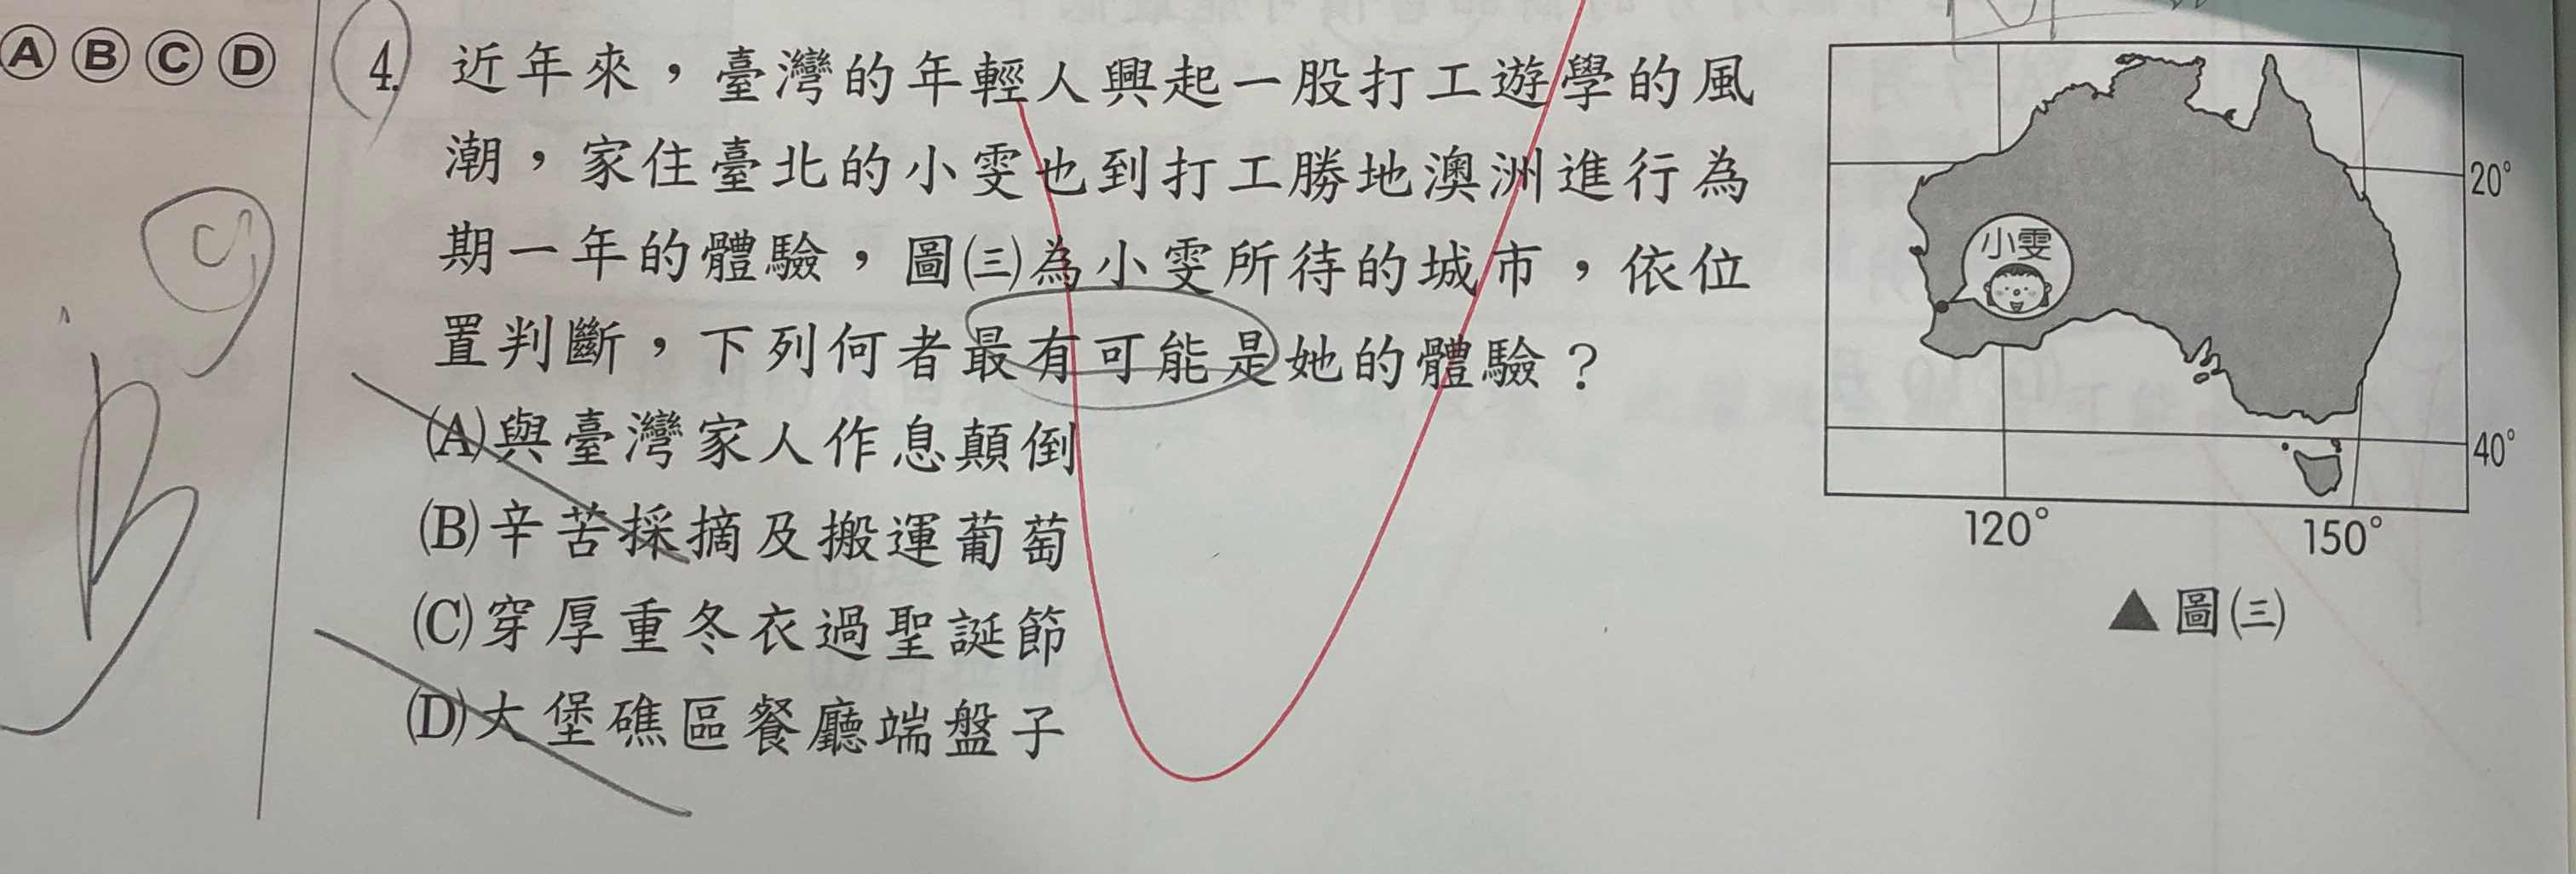 Ⓐ Ⓑ Ⓒ Ⓓ
4. 近年來，臺灣的年輕人興起一股打工遊學的風
潮，家住臺北的小雯也到打工勝地澳洲進行為
期一年的體驗，圖㈢為小雯所待的城市，依位
置判斷，下列何者最有可能是她的體驗？
(A)與臺灣家人作息顛倒
(B)辛苦採摘及搬運葡萄
(C)穿厚重冬衣過聖誕節
(D)大堡礁區餐廳端盤子
C
B
小雯
20°
40°
120°
150°
▲圖㈢